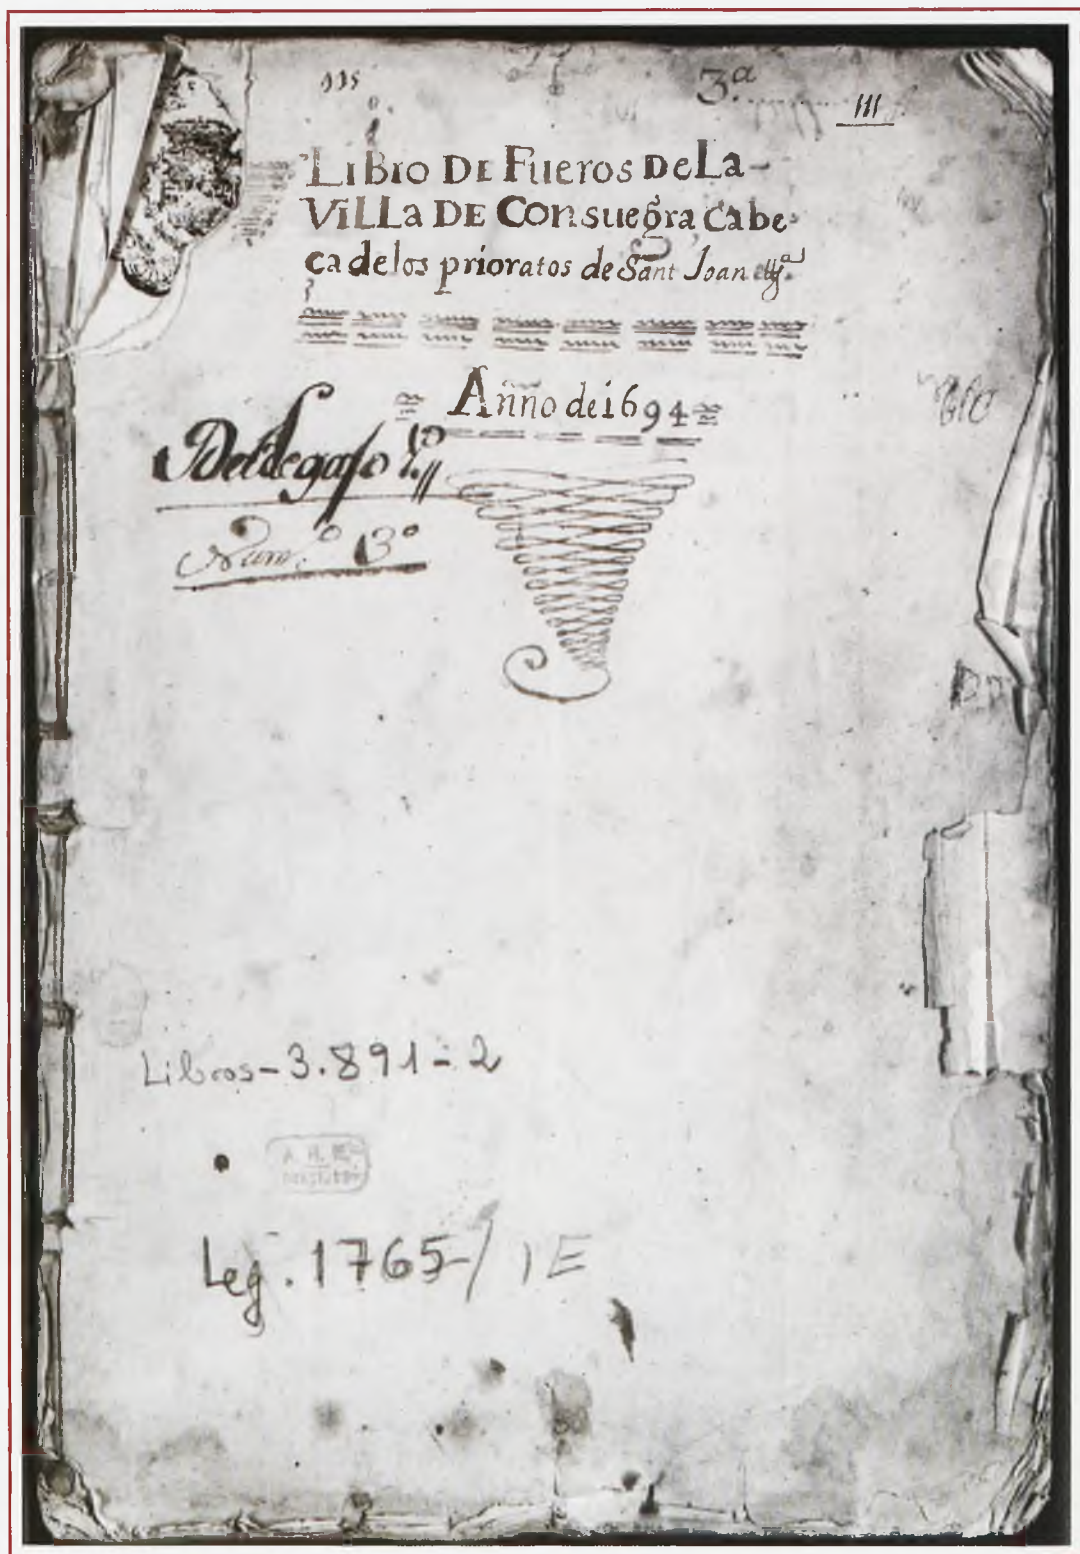 3.ª
III
LiBro DE Fueros DeLa-
ViLLa DE Consuegra Cabe-
ca de los prioratos de Sant Joan
Anño de 1694
Del legaso 1.º
Num.º 13º
Libros-3.891-2
A. H. N.
Leg. 1765/1E